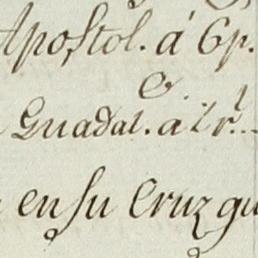 Apostol. á 6 p.
Guadal. a 2 r.
en su Cruz qu